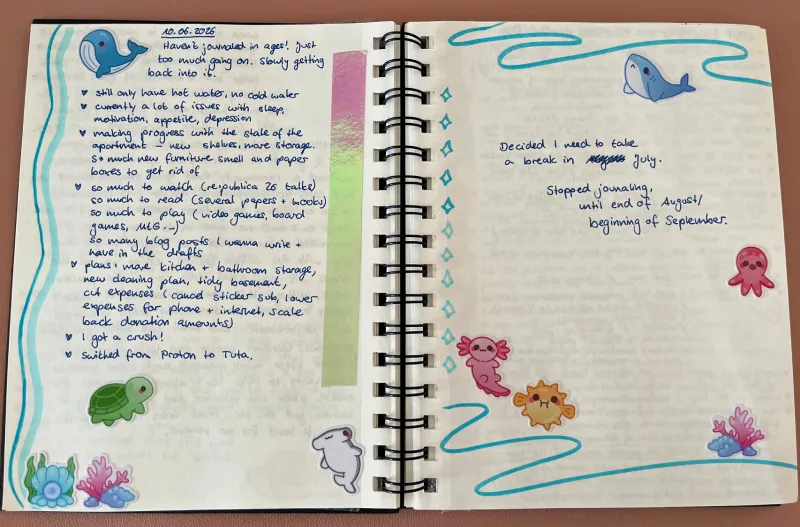 10.06.2026
Haven't journaled in ages! Just
too much going on. Slowly getting
back into it.
still only have hot water, no cold water
currently a lot of issues with sleep,
motivation, appetite, depression
making progress with the state of the
apartment - new shelves, more storage.
So much new furniture smell and paper
boxes to get rid of
so much to watch (re:publica 26 talks)
so much to read (several papers + books)
so much to play (video games, board
games, MLG...)
so many blog posts I wanna write +
have in the drafts
plans: more kitchen + bathroom storage,
new cleaning plan, tidy basement,
cut expenses (cancel sticker sub, lower
expenses for phone + internet, scale
back donation amounts)
I got a crush!
swithed from Proton to Tuta.
Decided I need to take
a break in July.
Stopped journaling,
until end of August/
beginning of September.